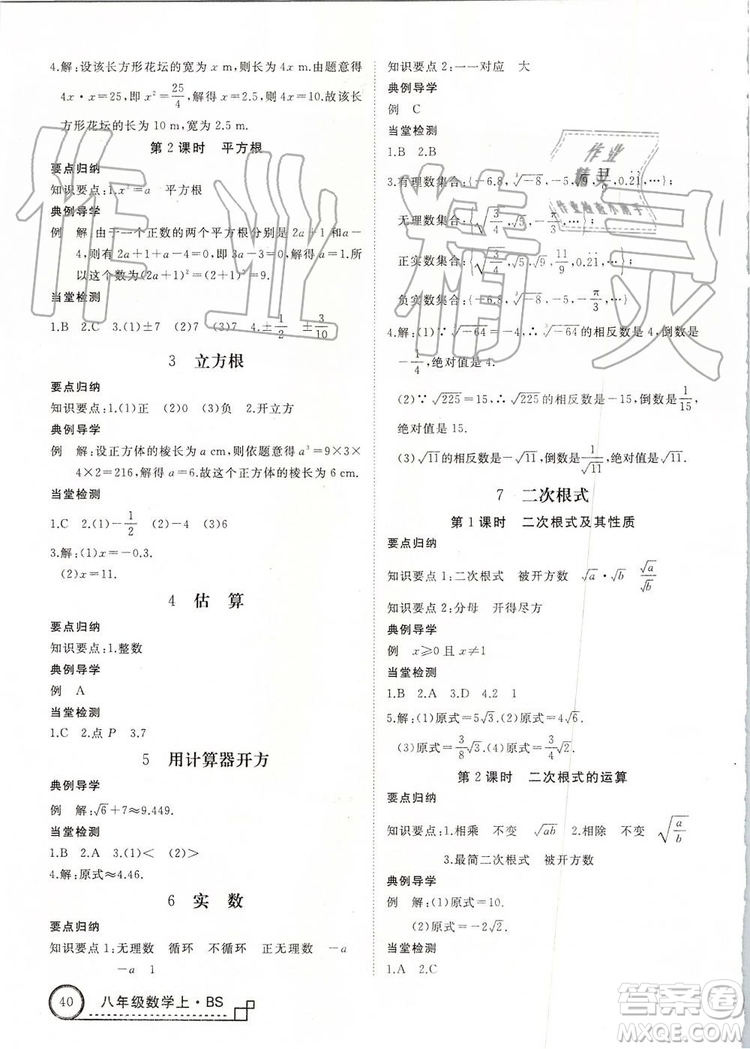 4.解：设该长方形花坛的宽为 x m，长为 4x m.由题意得
4x·x＝25，即 x²＝25/4，解得 x＝2.5，则 4x＝10.故该长
方形花坛的长为 10 m，宽为 2.5 m.
第 2 课时　平方根
要点归纳
知识要点：1.x²＝a　平方根
典例导学
例　解：由于一个正数的两个平方根分别是 2a＋1 和 a－
4，则有 2a＋1＋a－4＝0，解得 a＝1.所
以这个数为(2a＋1)²＝9.
当堂检测
1.B　2.C　3.(1)±7　(2)3　(3)7　4.±1/2　±3/10
3　立方根
要点归纳
知识要点：1.(1)正　(2)0　(3)负　2.开立方
典例导学
例　解：设正方体的棱长为 a cm，则依题意得 a³＝9×3×
4×2＝216，解得 a＝6.故这个正方体的棱长为 6 cm.
当堂检测
1.C　2.(1)－1/2　(2)－4　(3)6
3.解：(1)x＝－0.3.
(2)x＝11.
4　估　算
要点归纳
知识要点：1.整数
典例导学
例　A
当堂检测
1.C　2.点 P　3.7
5　用计算器开方
典例导学
例　解：√6＋7≈9.449.
当堂检测
1.B　2.A　3.(1)＜　(2)＞
4.解：原式≈4.46.
6　实　数
要点归纳
知识要点 1：无理数　循环　不循环　正无理数　－a
－a　1
40　八年级数学上·BS
知识要点 2：一一对应　大
典例导学
例　C
当堂检测
1.B　2.B
3.有理数集合：{－6.8，∛－8，－5，9，0.2̇1̇，…}；
无理数集合：{√(3/4)，∛5，－π/3，…}；
正实数集合：{√(3/4)，∛5，9，0.2̇1̇，…}；
负实数集合：{－6.8，∛－8，－5，－π/3，…}
4.解：(1)∵∛－64＝－4，∴∛－64的相反数是 4，倒数是
－1/4，绝对值是 4.
(2)∵√225＝15，∴√225的相反数是－15，倒数是1/15，
绝对值是 15.
(3)√11的相反数是－√11，倒数是1/√11，绝对值是√11.
7　二次根式
第 1 课时　二次根式及其性质
要点归纳
知识要点 1：二次根式　被开方数　√a·√b　√a/√b
知识要点 2：分母　开得尽方
典例导学
例　x≥0 且 x≠1
当堂检测
1.B　2.A　3.D　4.2　1
5.解：(1)原式＝5√3.　(2)原式＝4√6.
(3)原式＝3/8√3.　(4)原式＝3/4√2.
第 2 课时　二次根式的运算
要点归纳
知识要点：1.相乘　不变　√ab　2.相除　不变　√(a/b)
3.最简二次根式　被开方数
典例导学
例　解：(1)原式＝10.
(2)原式＝√2.
当堂检测
1.A　2.C
作业精灵
作业
精灵
作业检查小助手
答案圈
MXQE.COM